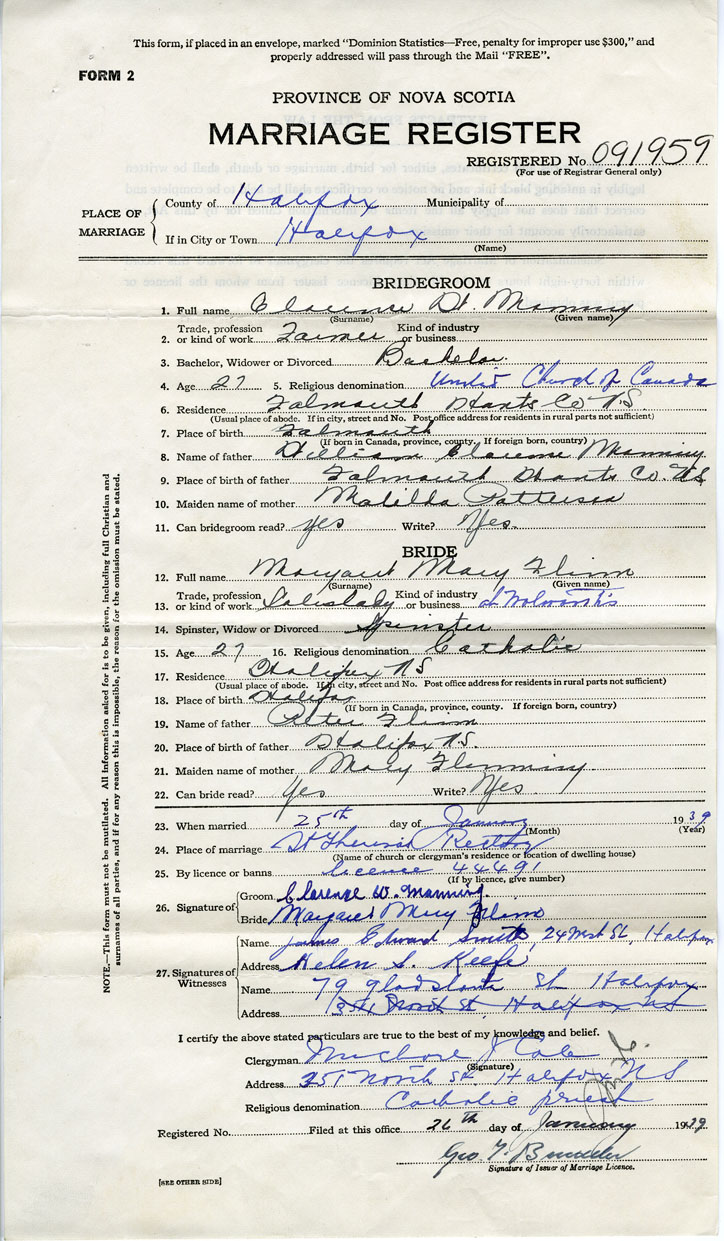 This form, if placed in an envelope, marked "Dominion Statistics—Free, penalty for improper use $300," and
properly addressed will pass through the Mail "FREE".
FORM 2
PROVINCE OF NOVA SCOTIA
MARRIAGE REGISTER
REGISTERED No 091959
(For use of Registrar General only)
PLACE OF MARRIAGE
County of Halifax Municipality of
If in City or Town Halifax
(Name)
BRIDEGROOM
1. Full name Clarence W. Manning
(Surname) (Given name)
2. Trade, profession or kind of work Farmer Kind of industry or business
3. Bachelor, Widower or Divorced Bachelor
4. Age 27 5. Religious denomination United Church of Canada
6. Residence Falmouth Hants Co NS
(Usual place of abode. If in city, street and No. Post office address for residents in rural parts not sufficient)
7. Place of birth Falmouth
(If born in Canada, province, county. If foreign born, country)
8. Name of father William Clarence Manning
9. Place of birth of father Falmouth Hants Co. NS
10. Maiden name of mother Matilda Patterson
11. Can bridegroom read? yes Write? Yes.
BRIDE
12. Full name Margaret Mary Flinn
(Surname) (Given name)
13. Trade, profession or kind of work Saleslady Kind of industry or business Woolworth's
14. Spinster, Widow or Divorced Spinster
15. Age 27 16. Religious denomination Catholic
17. Residence Halifax NS
(Usual place of abode. If in city, street and No. Post office address for residents in rural parts not sufficient)
18. Place of birth Halifax
(If born in Canada, province, county. If foreign born, country)
19. Name of father Peter Flinn
20. Place of birth of father Halifax NS.
21. Maiden name of mother Mary Flemming
22. Can bride read? Yes Write? Yes
23. When married 25th day of January 1939
(Month) (Year)
24. Place of marriage St Theresa's Rectory
(Name of church or clergyman's residence or location of dwelling house)
25. By licence or banns licence 44491
(If by licence, give number)
26. Signature of
Groom Clarence W. Manning
Bride Margaret Mary Flinn
27. Signatures of Witnesses
Name James Edward Smith, 24 West St, Halifax
Address Helen S. Keefe
Name 79 Gladstone St Halifax
Address North St, Halifax NS
I certify the above stated particulars are true to the best of my knowledge and belief.
Clergyman J Cole
(Signature)
Address 351 North St. Halifax NS
Religious denomination Catholic priest
Registered No. Filed at this office 26th day of January 1939
Geo. F.
Signature of Issuer of Marriage Licence.
[SEE OTHER SIDE]
NOTE.—This form must not be mutilated. All information asked for is to be given, including full Christian and
surnames of all parties, and if for any reason this is impossible, the reason for the omission must be stated.